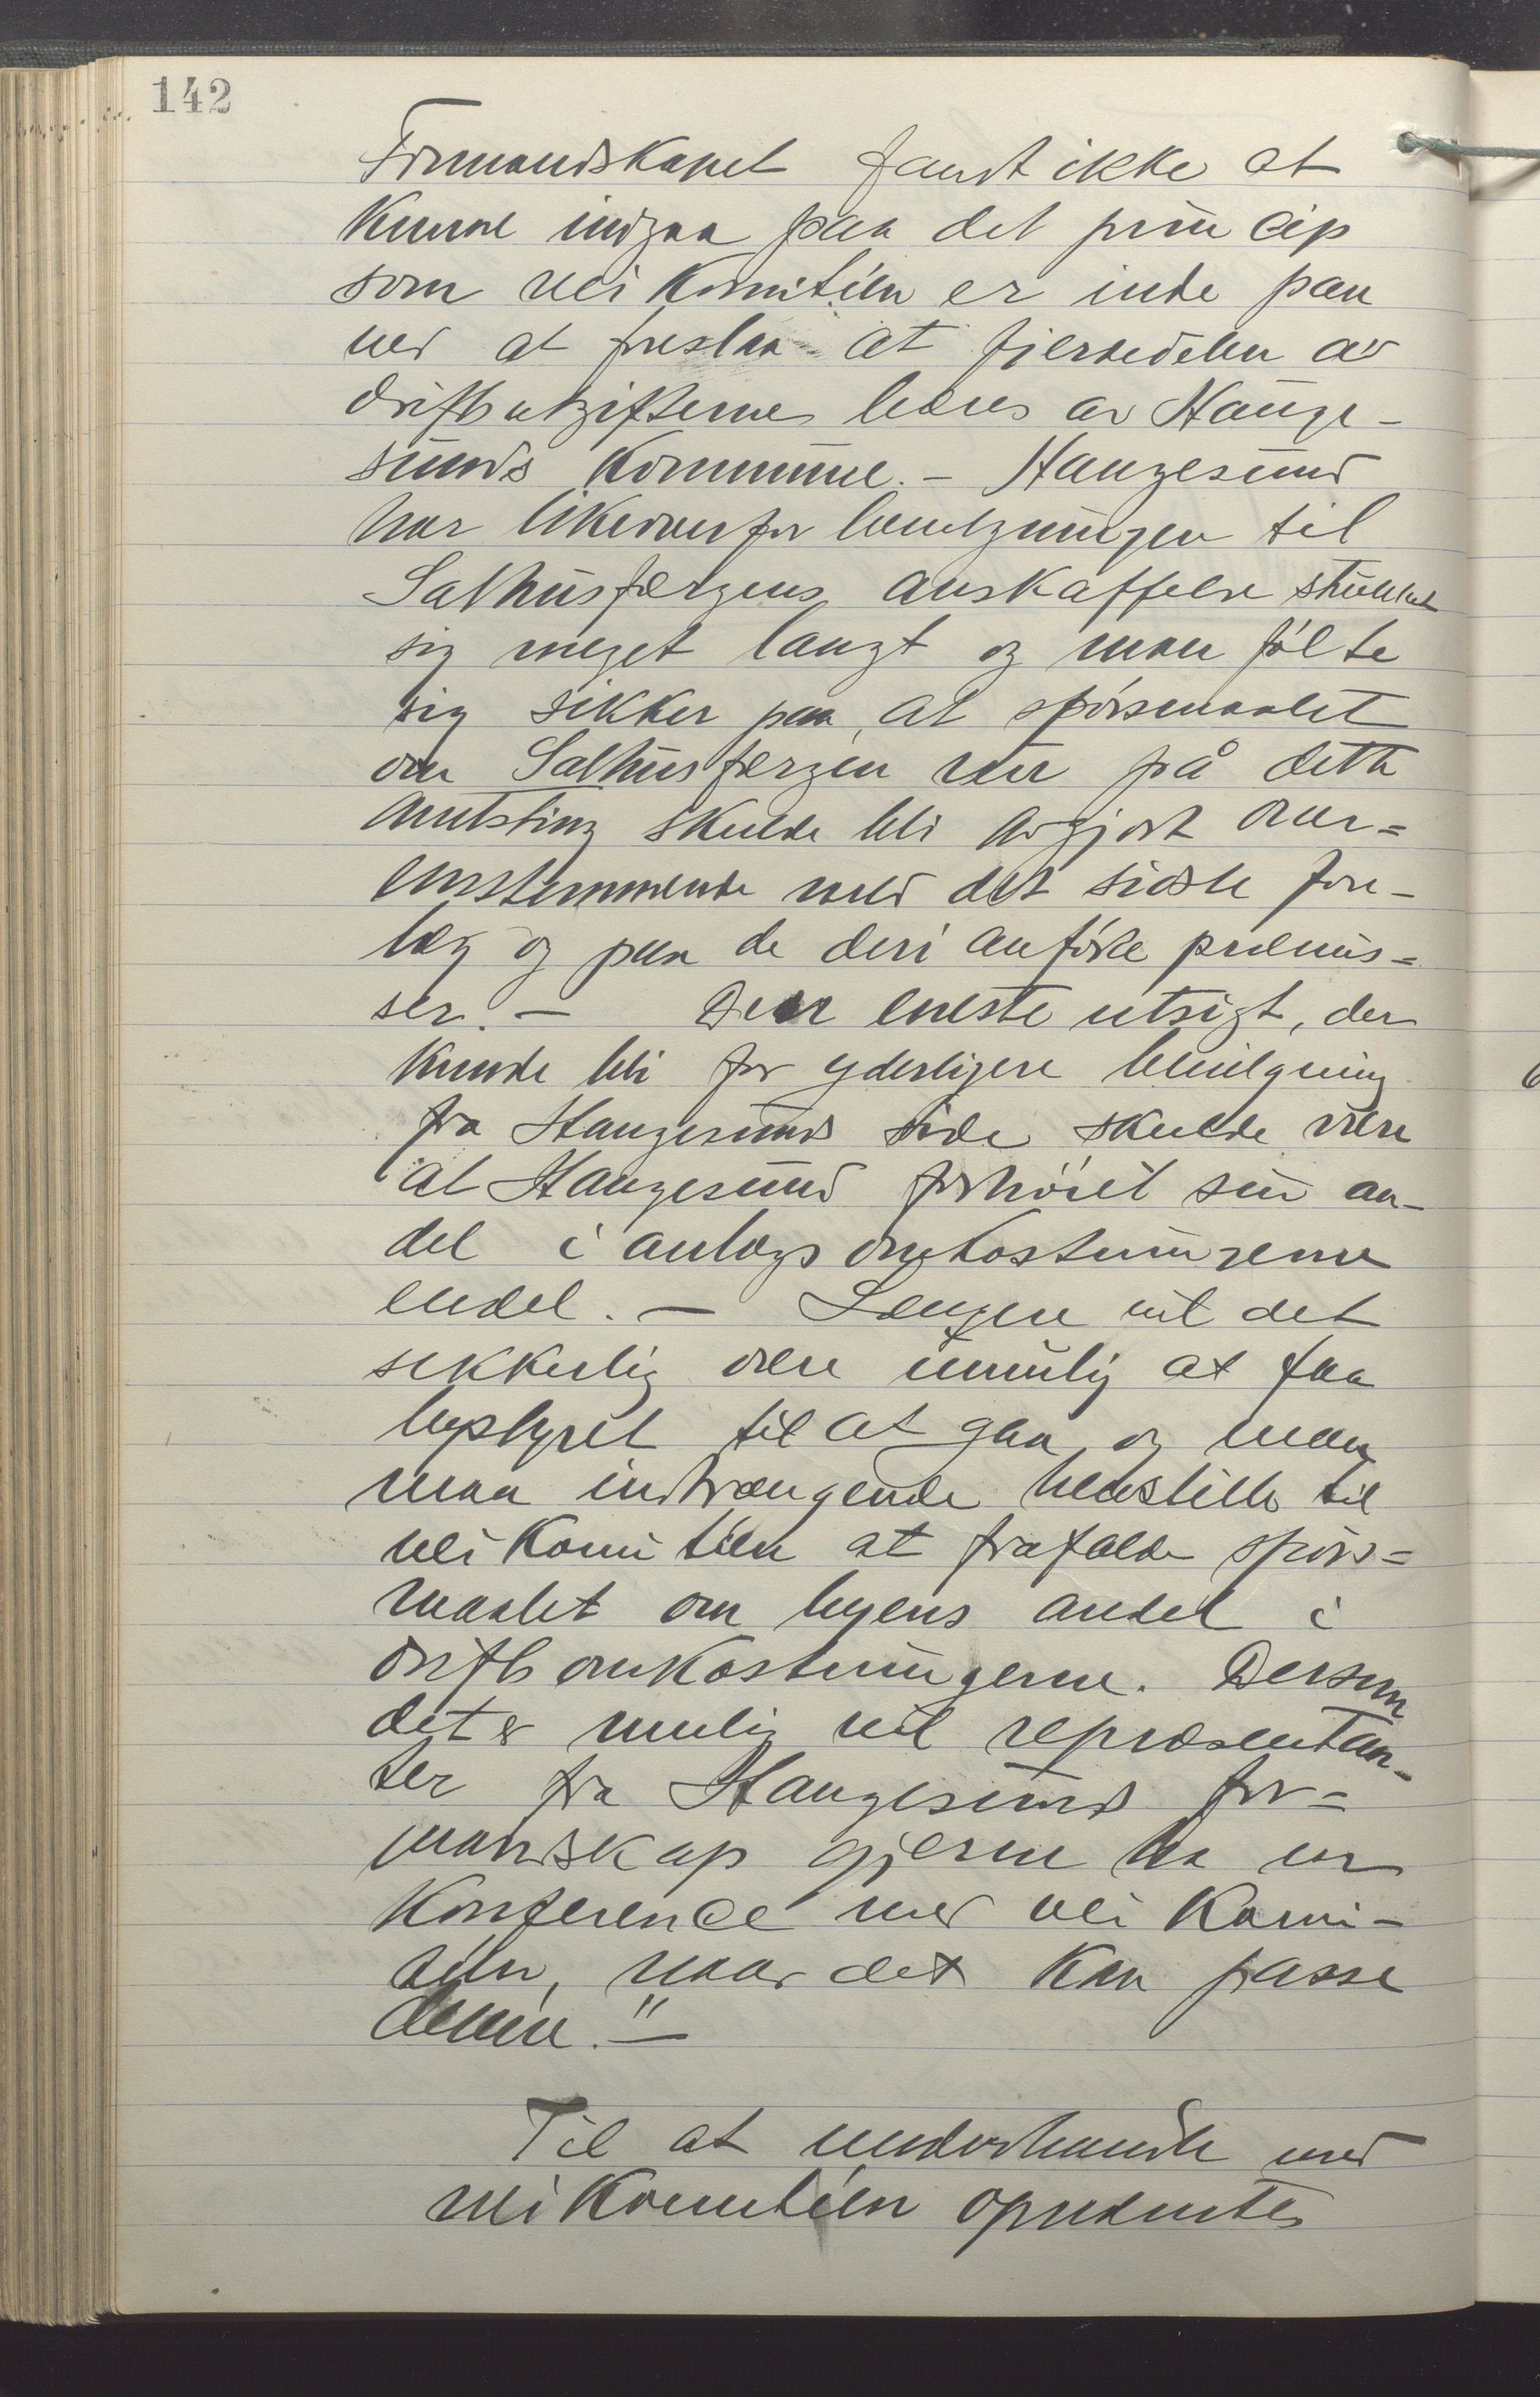 142
Formandskapet fandt ikke at
kunne indgaa paa det princip
som veikomitéen er inde paa
ved at foreslaa at fjerdedelen av
driftsutgifterne bæres av Hauge-
sunds kommune. - Haugesund
har likeoverfor bevilgningen til
Salhusfærgens anskaffelse strukket
sig meget langt og man følte
sig sikker paa, at spørsmaalet
om Salhusfærgen nu på dette
amtsting skulde bli avgjort over=
ensstemmende med det sidste fore-
læg og paa de deri anførte præmis=
ser. - Den eneste utsigt, der
kunde bli for yderligere bevilgning
fra Haugesunds side skulde være
at Haugesund forhøiet sin an-
del i anlægsomkostningerne
endel. - Længere vil det
sikkerlig være umulig at faa
bystyret til at gaa og man
maa indtrængende henstille til
veikomitéen at frafalde spørs=
maalet om byens andel i
driftsomkostningerne. Dersom
det er mulig vil repræsentan-
ter fra Haugesunds for=
mandskap gjerne ha en
konference med veikomi-
téen, naar det kan passe
denne." -
Til at underhandle med
veikomitéen opnævntes